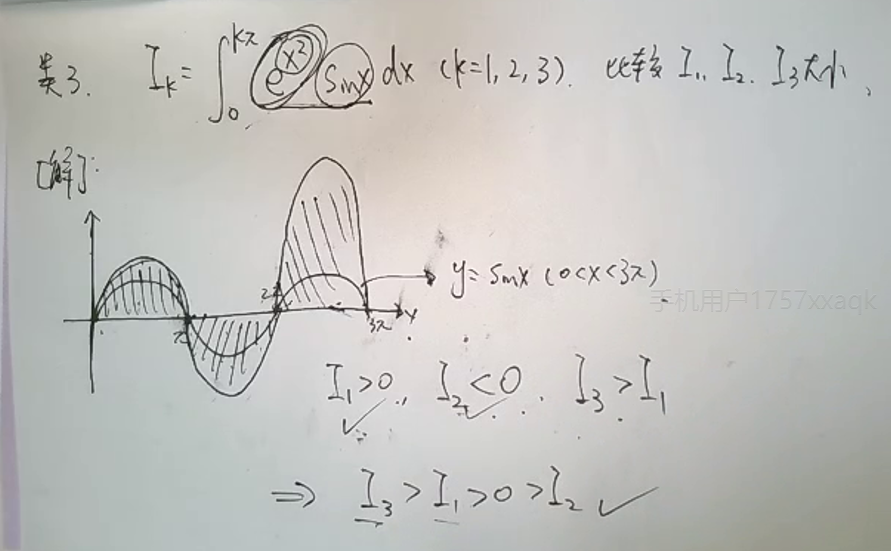 类3. I_k = ∫_0^{kπ} e^{x^2} sinx dx (k=1,2,3). 比较 I_1, I_2, I_3大小,
[解]:
y=sinx (0<x<3π).
手机用户1757xxaqk
π 2π 3π x
I_1>0, I_2<0. I_3>I_1
⇒ I_3>I_1>0>I_2